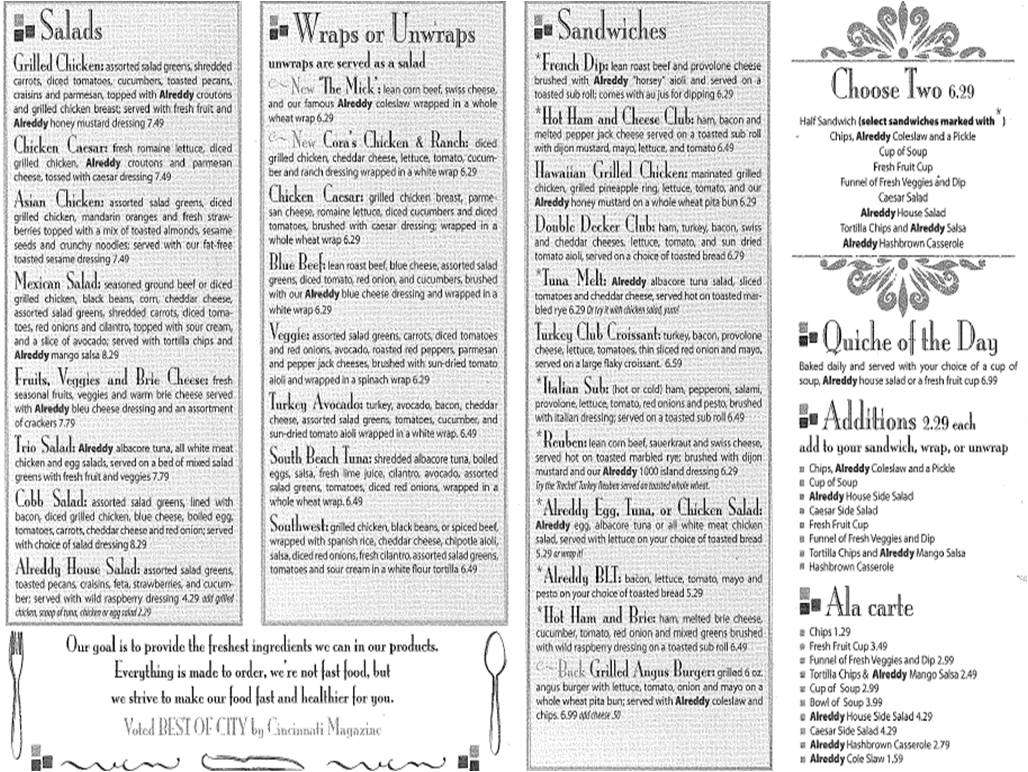 Salads
Grilled Chicken: assorted salad greens, shredded
carrots, diced tomatoes, cucumbers, toasted pecans,
craisins and parmesan, topped with Alreddy croutons
and grilled chicken breast; served with fresh fruit and
Alreddy honey mustard dressing 7.49
Chicken Caesar: fresh romaine lettuce, diced
grilled chicken, Alreddy croutons and parmesan
cheese, tossed with caesar dressing 7.49
Asian Chicken: assorted salad greens, diced
grilled chicken, mandarin oranges and fresh straw-
berries topped with a mix of toasted almonds, sesame
seeds and crunchy noodles; served with our fat-free
toasted sesame dressing 7.49
Mexican Salad: seasoned ground beef or diced
grilled chicken, black beans, corn, cheddar cheese,
assorted salad greens, shredded carrots, diced toma-
toes, red onions and cilantro, topped with sour cream,
and a slice of avocado; served with tortilla chips and
Alreddy mango salsa 8.29
Fruits, Veggies and Brie Cheese: fresh
seasonal fruits, veggies and warm brie cheese served
with Alreddy bleu cheese dressing and an assortment
of crackers 7.79
Trio Salad: Alreddy albacore tuna, all white meat
chicken and egg salads, served on a bed of mixed salad
greens with fresh fruit and veggies 7.79
Cobb Salad: assorted salad greens, lined with
bacon, diced grilled chicken, blue cheese, boiled egg,
tomatoes, carrots, cheddar cheese and red onion; served
with choice of salad dressing 8.29
Alreddy House Salad: assorted salad greens,
toasted pecans, craisins, feta, strawberries, and cucum-
ber; served with wild raspberry dressing 4.29 add grilled
chicken, scoop of tuna, chicken or egg salad 2.29
Wraps or Unwraps
unwraps are served as a salad
New 'The Mick': lean corn beef, swiss cheese,
and our famous Alreddy coleslaw wrapped in a whole
wheat wrap 6.29
New Cora's Chicken & Ranch: diced
grilled chicken, cheddar cheese, lettuce, tomato, cucum-
ber and ranch dressing wrapped in a white wrap 6.29
Chicken Caesar: grilled chicken breast, parme-
san cheese, romaine lettuce, diced cucumbers and diced
tomatoes, brushed with caesar dressing; wrapped in a
whole wheat wrap 6.29
Blue Beef: lean roast beef, blue cheese, assorted salad
greens, diced tomato, red onion, and cucumbers, brushed
with our Alreddy blue cheese dressing and wrapped in a
white wrap 6.29
Veggie: assorted salad greens, carrots, diced tomatoes
and red onions, avocado, roasted red peppers, parmesan
and pepper jack cheeses, brushed with sun-dried tomato
aioli and wrapped in a spinach wrap 6.29
Turkey Avocado: turkey, avocado, bacon, cheddar
cheese, assorted salad greens, tomatoes, cucumber, and
sun-dried tomato aioli wrapped in a white wrap. 6.49
South Beach Tuna: shredded albacore tuna, boiled
eggs, salsa, fresh lime juice, cilantro, avocado, assorted
salad greens, tomatoes, diced red onions, wrapped in a
whole wheat wrap. 6.49
Southwest: grilled chicken, black beans, or spiced beef,
wrapped with spanish rice, cheddar cheese, chipotle aioli,
salsa, diced red onions, fresh cilantro, assorted salad greens,
tomatoes and sour cream in a white flour tortilla 6.49
Our goal is to provide the freshest ingredients we can in our products.
Everything is made to order, we're not fast food, but
we strive to make our food fast and healthier for you.
Voted BEST OF CITY by Cincinnati Magazine
Sandwiches
*French Dip: lean roast beef and provolone cheese
brushed with Alreddy "horsey" aioli and served on a
toasted sub roll; comes with au jus for dipping 6.29
*Hot Ham and Cheese Club: ham, bacon and
melted pepper jack cheese served on a toasted sub roll
with dijon mustard, mayo, lettuce, and tomato 6.49
Hawaiian Grilled Chicken: marinated grilled
chicken, grilled pineapple ring, lettuce, tomato, and our
Alreddy honey mustard on a whole wheat pita bun 6.29
Double Decker Club: ham, turkey, bacon, swiss
and cheddar cheeses, lettuce, tomato, and sun dried
tomato aioli, served on a choice of toasted bread 6.79
*Tuna Melt: Alreddy albacore tuna salad, sliced
tomatoes and cheddar cheese, served hot on toasted mar-
bled rye 6.29 Or try it with chicken salad, yum!
Turkey Club Croissant: turkey, bacon, provolone
cheese, lettuce, tomatoes, thin sliced red onion and mayo,
served on a large flaky croissant. 6.59
*Italian Sub: (hot or cold) ham, pepperoni, salami,
provolone, lettuce, tomato, red onions and pesto, brushed
with italian dressing; served on a toasted sub roll 6.49
*Reuben: lean corn beef, sauerkraut and swiss cheese,
served hot on toasted marbled rye; brushed with dijon
mustard and our Alreddy 1000 island dressing 6.29
Try the 'Rachel' Turkey Reuben served on toasted whole wheat.
*Alreddy Egg, Tuna, or Chicken Salad:
Alreddy egg, albacore tuna or all white meat chicken
salad, served with lettuce on your choice of toasted bread
5.29 or wrap it!
*Alreddy BLT: bacon, lettuce, tomato, mayo and
pesto on your choice of toasted bread 5.29
*Hot Ham and Brie: ham, melted brie cheese,
cucumber, tomato, red onion and mixed greens brushed
with wild raspberry dressing on a toasted sub roll 6.49
Back Grilled Angus Burger: grilled 6 oz.
angus burger with lettuce, tomato, onion and mayo on a
whole wheat pita bun; served with Alreddy coleslaw and
chips. 6.99 add cheese .50
Choose Two 6.29
Half Sandwich (select sandwiches marked with *)
Chips, Alreddy Coleslaw and a Pickle
Cup of Soup
Fresh Fruit Cup
Funnel of Fresh Veggies and Dip
Caesar Salad
Alreddy House Salad
Tortilla Chips and Alreddy Salsa
Alreddy Hashbrown Casserole
Quiche of the Day
Baked daily and served with your choice of a cup of
soup, Alreddy house salad or a fresh fruit cup 6.99
Additions 2.29 each
add to your sandwich, wrap, or unwrap
Chips, Alreddy Coleslaw and a Pickle
Cup of Soup
Alreddy House Side Salad
Caesar Side Salad
Fresh Fruit Cup
Funnel of Fresh Veggies and Dip
Tortilla Chips and Alreddy Mango Salsa
Hashbrown Casserole
Ala carte
Chips 1.29
Fresh Fruit Cup 3.49
Funnel of Fresh Veggies and Dip 2.99
Tortilla Chips & Alreddy Mango Salsa 2.49
Cup of Soup 2.99
Bowl of Soup 3.99
Alreddy House Side Salad 4.29
Caesar Side Salad 4.29
Alreddy Hashbrown Casserole 2.79
Alreddy Cole Slaw 1.59